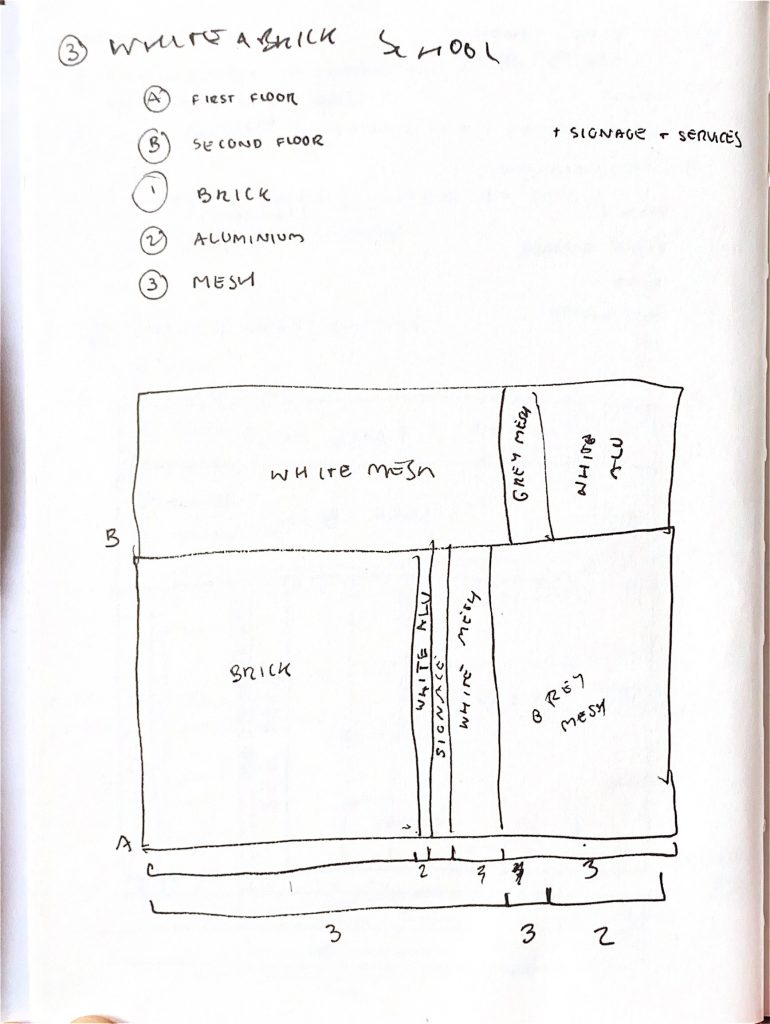 ③ WHITE & BRICK SCHOOL
Ⓐ FIRST FLOOR
Ⓑ SECOND FLOOR
+ SIGNAGE + SERVICES
① BRICK
② ALUMINIUM
③ MESH
WHITE MESH
GREY MESH
WHITE ALU
B
BRICK
WHITE ALU
SIGNAGE
WHITE MESH
GREY
MESH
A
1 2 3 3
3 3 2